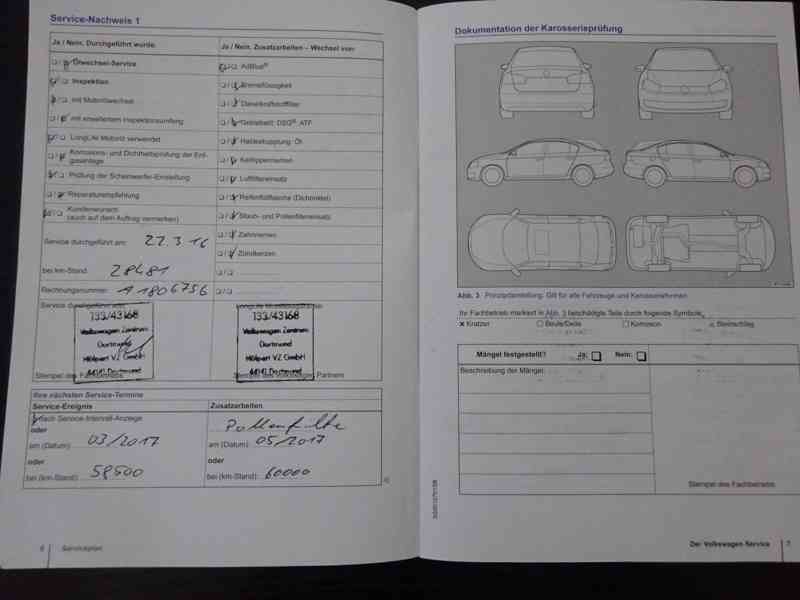 Service-Nachweis 1
Ja / Nein, Durchgeführt wurde:
Ölwechsel-Service
Inspektion
mit Motorölwechsel
mit erweitertem Inspektionsumfang
LongLife Motoröl verwendet
Korrosions- und Dichtheitsprüfung der Erd-
gasanlage
Prüfung der Scheinwerfer-Einstellung
Reparaturempfehlung
Kundenwunsch
(auch auf dem Auftrag vermerken)
Service durchgeführt am: 22.3 16
bei km-Stand: 28481
Rechnungsnummer: A1806756
Service durchgeführt
133/43168
Volkswagen Zentrum
Dortmund
Hülpert VZ GmbH
44141 Dortmund
Ja / Nein, Zusatzarbeiten – Wechsel von:
AdBlue®
Bremsflüssigkeit
Dieselkraftstofffilter
Getriebeöl: DSG®, ATF
Haldexkupplung: Öl
Keilrippenriemen
Luftfiltereinsatz
Reifenfüllflasche (Dichtmittel)
Staub- und Pollenfiltereinsatz
Zahnriemen
Zündkerzen
133/43168
Volkswagen Zentrum
Dortmund
Hülpert VZ GmbH
44141 Dortmund
Stempel des Volkswagen Partners
Ihre nächsten Service-Termine
Service-Ereignis
nach Service-Intervall-Anzeige
oder
am (Datum): 03/2017
oder
bei (km-Stand): 58500
Zusatzarbeiten
Pollenfilter
am (Datum): 05/2017
oder
bei (km-Stand): 60000
6 Serviceplan
Dokumentation der Karosserieprüfung
Abb. 3 Prinzipdarstellung: Gilt für alle Fahrzeuge und Karosserieformen
Ihr Fachbetrieb markiert in Abb. 3 beschädigte Teile durch folgende Symbole:
× Kratzer ○ Beule/Delle □ Korrosion △ Steinschlag
Mängel festgestellt? Ja: □ Nein: □
Beschreibung der Mängel:
Stempel des Fachbetriebs
Der Volkswagen Service 7